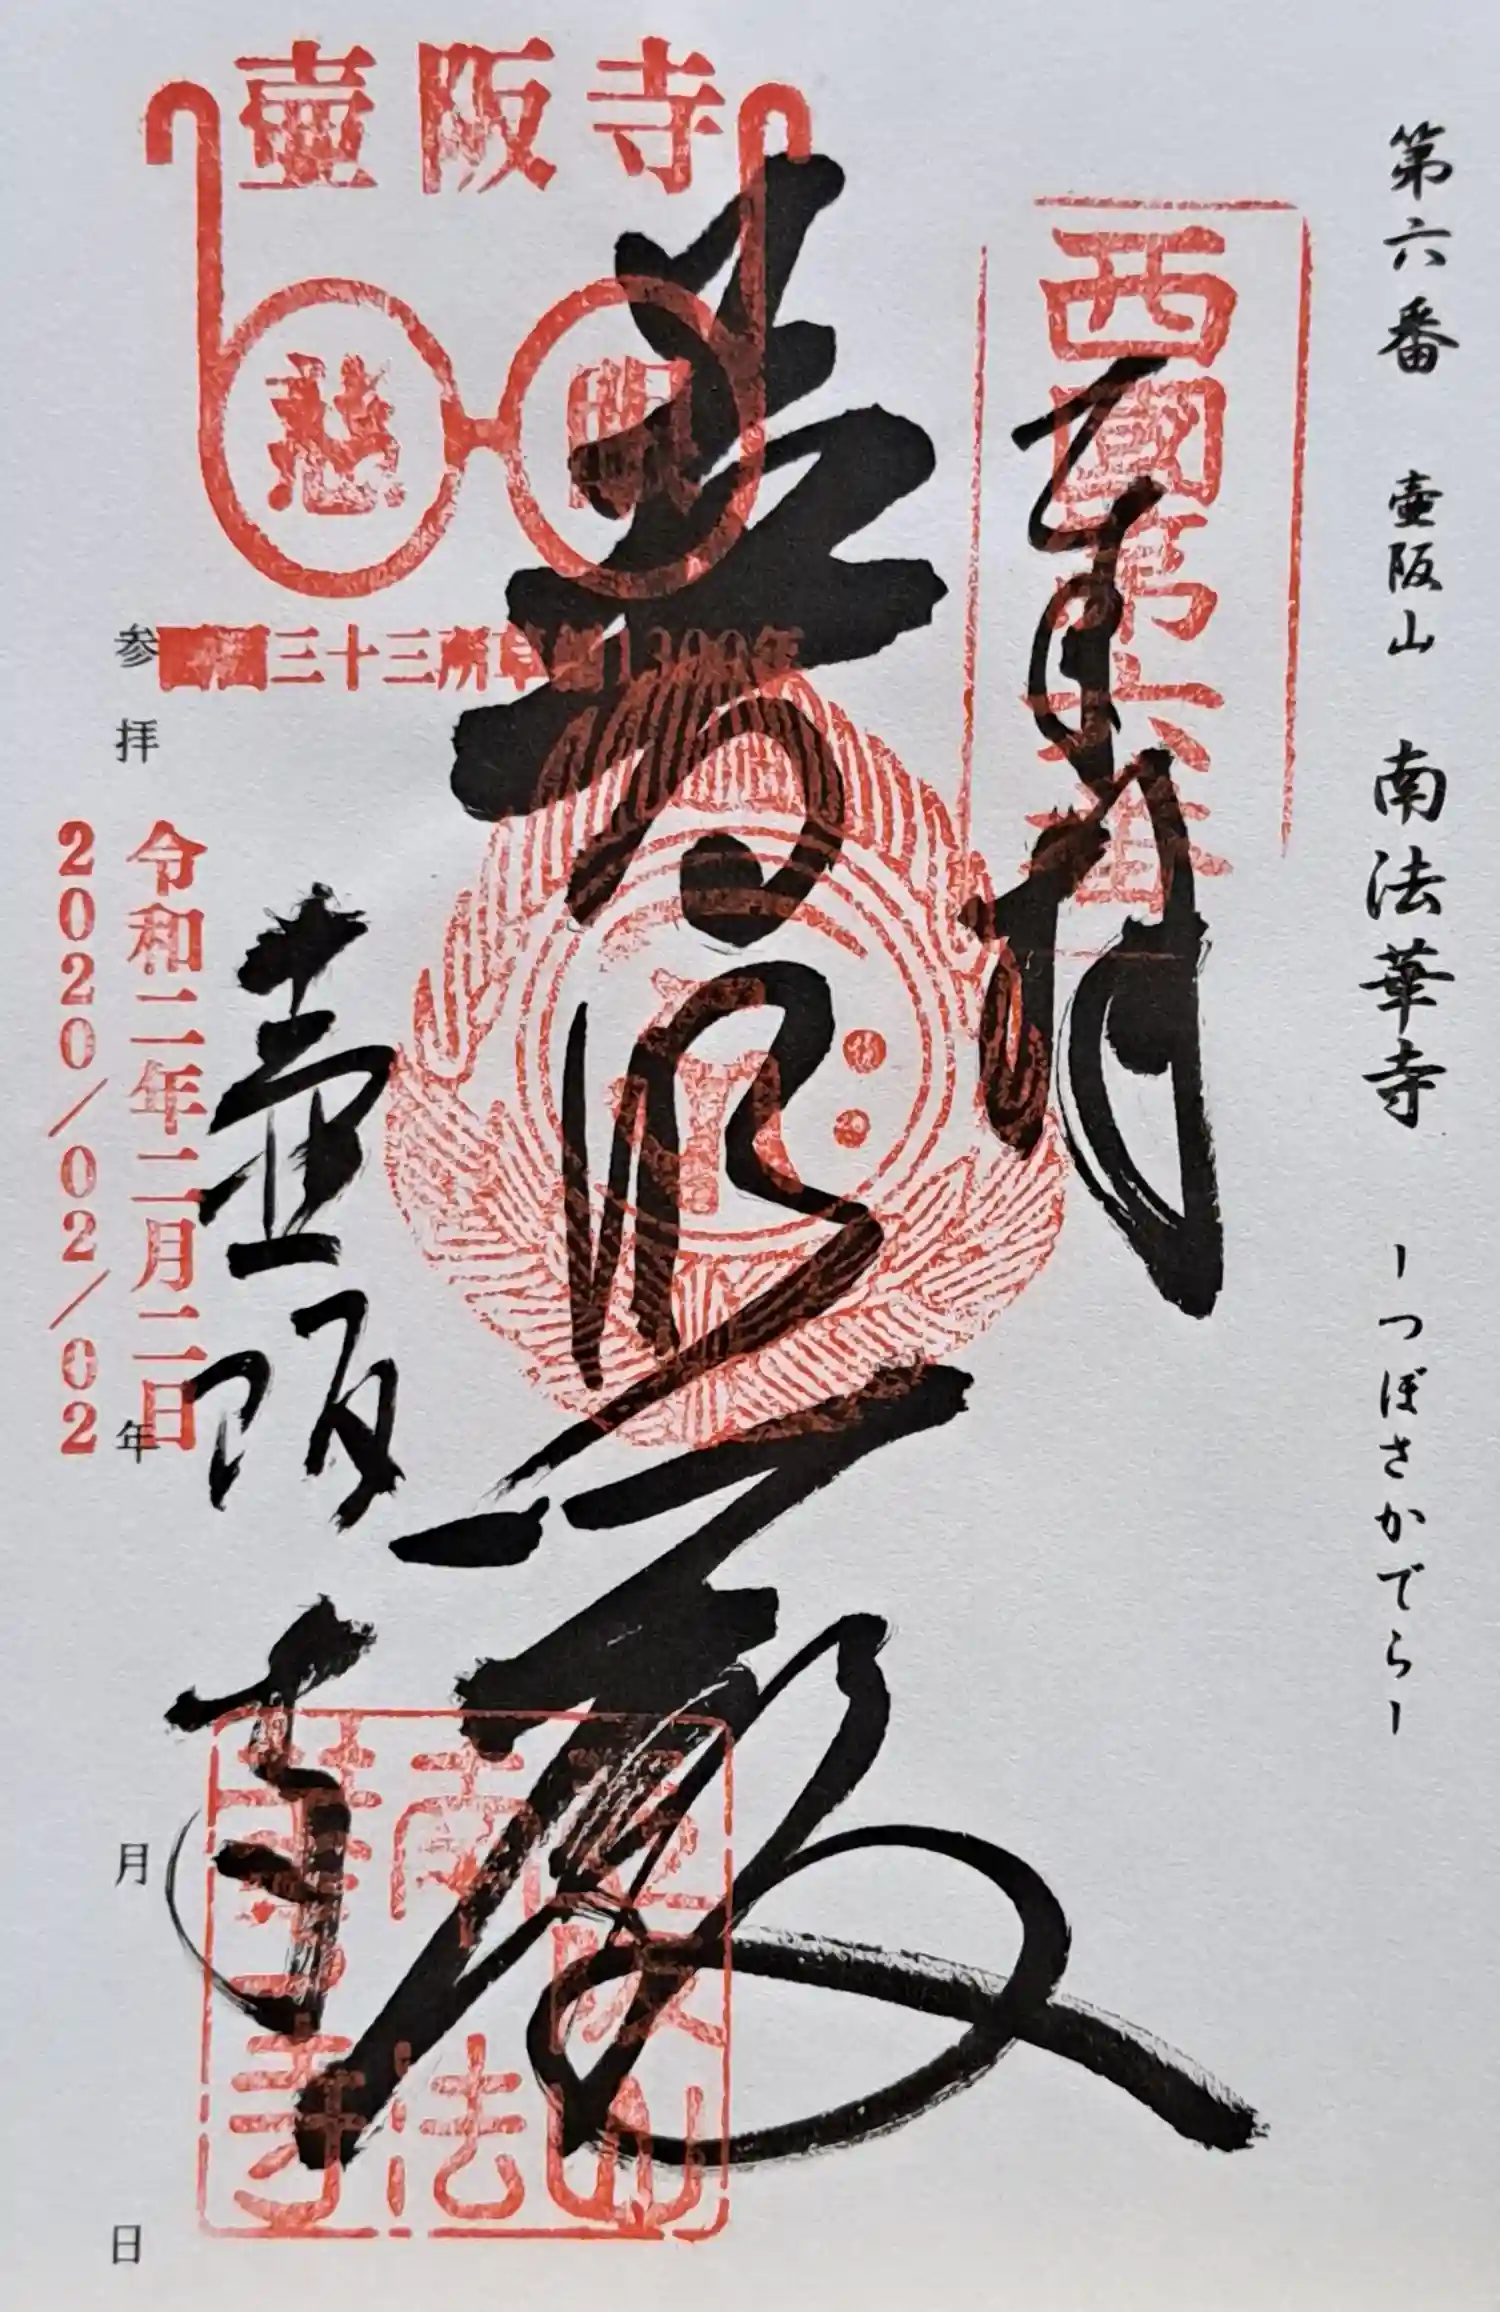 第六番 壷阪山 南法華寺 ーつぼさかでらー
西國第六番
奉拝
壷阪寺
慈
眼
西国三十三所草創1300年
普照殿
壺阪寺
参拝 年 月 日
令和二年二月二日
2020/02/02
壺阪山
南法
華寺